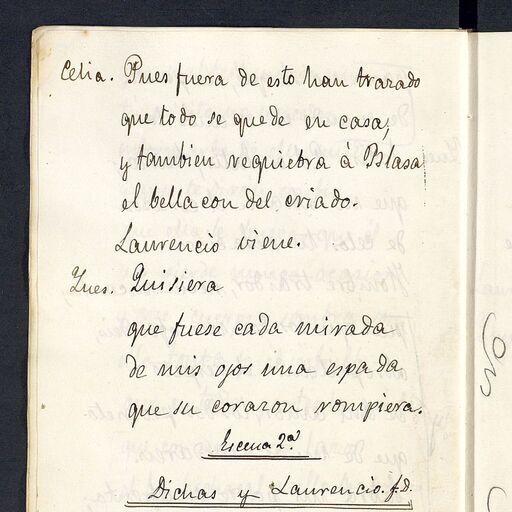 Celia. Pues fuera de esto han trazado
que todo se quede en casa,
y tambien requiebra à Blasa
el bellacon del criado.
Laurencio viene.
Ynes. Quisiera
que fuese cada mirada
de mis ojos una espada
que su corazon rompiera.
Escena 2ª
Dichas y Laurencio. f.D.